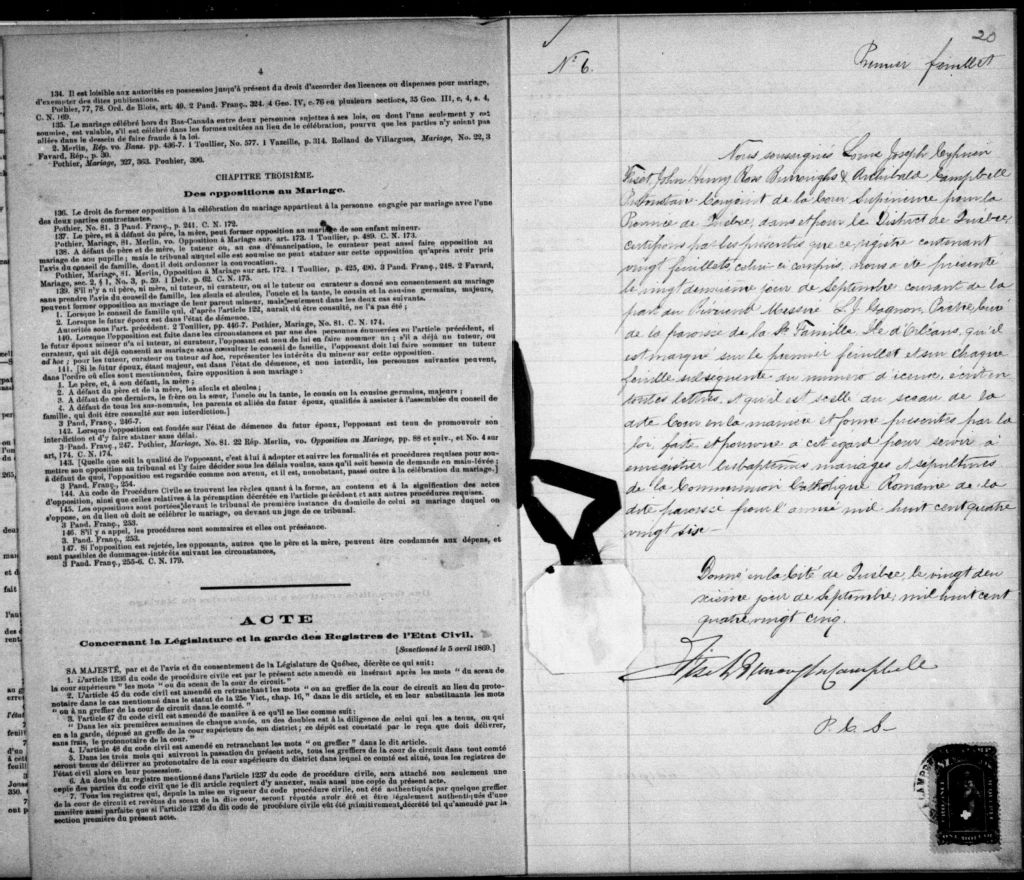 4
134. Il est loisible aux autorités en possession jusqu'à présent du droit d'accorder des licences ou dispenses pour mariage,
d'exempter des dites publications.
Pothier, 77, 78. Ord. de Blois, art. 40. 2 Pand. Franç., 324. 4 Geo. IV, c. 76 en plusieurs sections, 35 Geo. III, c. 4, s. 4,
C. N. 169.
135. Le mariage célébré hors du Bas-Canada entre deux personnes sujettes à ses lois, ou dont l'une seulement y est
soumise, est valable, s'il est célébré dans les formes usitées au lieu de la célébration, pourvu que les parties n'y soient pas
allées dans le dessein de faire fraude à la loi.
2. Merlin, Rép. vo. Bans. pp. 436-7. 1 Toullier, No. 577. 1 Vazeille, p. 314. Rolland de Villargues, Mariage, No. 22, 3
Favard, Rép., p. 30.
Pothier, Mariage, 327, 363. Pouhier, 390.
CHAPITRE TROISIÈME.
Des oppositions au Mariage.
136. Le droit de former opposition à la célébration du mariage appartient à la personne engagée par mariage avec l'une
des deux parties contractantes.
Pothier, No. 81. 3 Pand. Franç., p. 241. C. N. 172.
137. Le père, et à défaut du père, la mère, peut former opposition au mariage de son enfant mineur.
Pothier, Mariage, 81. Merlin, vo. Opposition à Mariage sur art. 173. 1 Toullier, p. 489. C. N. 173.
138. A défaut de père et de mère, le tuteur, ou, au cas d'émancipation, le curateur peut aussi faire opposition au
mariage de son pupille ; mais le tribunal auquel elle est soumise ne peut statuer sur cette opposition qu'après avoir pris
l'avis du conseil de famille, dont il doit ordonner la convocation.
Pothier, Mariage, 81. Merlin, Opposition à Mariage sur art. 172. 1 Toullier, p. 425, 490. 3 Pand. Franç., 248. 2 Favard,
Mariage, sec. 2, § 1, No. 3, p. 59. 1 Delv. p. 62. C. N. 175.
139. S'il n'y a ni père, ni mère, ni tuteur, ni curateur, ou si le tuteur ou curateur a donné son consentement au mariage
sans prendre l'avis du conseil de famille, les aïeuls et aïeules, l'oncle et la tante, le cousin et la cousine germains, majeurs,
peuvent former opposition au mariage de leur parent mineur, mais seulement dans les deux cas suivants.
1. Lorsque le conseil de famille qui, d'après l'article 122, aurait dû être consulté, ne l'a pas été ;
2. Lorsque le futur époux est dans l'état de démence.
Autorités sous l'art. précédent. 2 Toullier, pp. 446-7. Pothier, Mariage, No. 81. C. N. 174.
140. Lorsque l'opposition est faite dans les circonstances et par une des personnes énoncées en l'article précédent, si
le futur époux mineur n'a ni tuteur, ni curateur, l'opposant est tenu de lui en faire nommer un ; s'il a déjà un tuteur, ou
curateur, qui ait déjà consenti au mariage sans consulter le conseil de famille, l'opposant doit lui faire nommer un tuteur
ad hoc ; pour les tuteur, curateur ou tuteur ad hoc, représenter les intérêts du mineur sur cette opposition.
141. [Si le futur époux, étant majeur, est dans l'état de démence, et non interdit, les personnes suivantes peuvent,
dans l'ordre où elles sont mentionnées, faire opposition à son mariage :
1. Le père, et, à son défaut, la mère ;
2. A défaut du père et de la mère, les aïeuls et aïeules ;
3. A défaut de ces derniers, le frère ou la sœur, l'oncle ou la tante, le cousin ou la cousine germains, majeurs ;
4. A défaut de tous les sus-nommés, les parents et alliés du futur époux, qualifiés à assister à l'assemblée du conseil de
famille, qui doit être consulté sur son interdiction.]
3 Pand. Franç., 246-7.
142. Lorsque l'opposition est fondée sur l'état de démence du futur époux, l'opposant est tenu de promouvoir son
interdiction et d'y faire statuer sans délai.
3 Pand. Franç., 247. Pothier, Mariage, No. 81. 22 Rép. Merlin, vo. Opposition au Mariage, pp. 88 et suiv., et No. 4 sur
art, 174. C. N. 174.
143. [Quelque soit la qualité de l'opposant, c'est à lui à adopter et suivre les formalités et procédures requises pour sou-
mettre son opposition au tribunal et l'y faire décider sous les délais voulus, sans qu'il soit besoin de demande en main-levée ;
à défaut de quoi, l'opposition est regardée comme non avenue, et il est, nonobstant, passé outre à la célébration du mariage.]
3 Pand. Franç., 254.
144. Au code de Procédure Civile se trouvent les règles quant à la forme, au contenu et à la signification des actes
d'opposition, ainsi que celles relatives à la péremption décrétée en l'article précédent et aux autres procédures requises.
145. Les oppositions sont portées devant le tribunal de première instance du domicile de celui au mariage duquel on
s'oppose, ou du lieu où doit se célébrer le mariage, ou devant un juge de ce tribunal.
3 Pand. Franç., 253.
146. S'il y a appel, les procédures sont sommaires et elles ont préséance.
3. Pand. Franç., 253.
147. Si l'opposition est rejetée, les opposants, autres que le père et la mère, peuvent être condamnés aux dépens, et
sont passibles de dommages-intérêts suivant les circonstances,
3 Pand. Franç., 255-6. C. N. 179.
ACTE
Concernant la Législature et la garde des Registres de l'Etat Civil.
[Sanctionné le 5 avril 1869.]
SA MAJESTÉ, par et de l'avis et du consentement de la Législature de Québec, décrète ce qui suit:
1. L'article 1236 du code de procédure civile est par le présent acte amendé en insérant après les mots " du sceau de
la cour supérieure " les mots " ou du sceau de la cour de circuit."
2. L'article 45 du code civil est amendé en retranchant les mots " ou au greffier de la cour de circuit au lieu du proto-
notaire dans le cas mentionné dans le statut de la 25e Vict., chap. 16," dans le dit article, et en leur substituant les mots
" ou à un greffier de la cour de circuit dans le comté."
3. l'article 47 du code civil est amendé de manière à ce qu'il se lise comme suit :
" Dans les six premières semaines de chaque année, un des doubles est à la diligence de celui qui les a tenus, ou qui
en a la garde, déposé au greffe de la cour supérieure de son district ; ce dépôt est constaté par le reçu que doit délivrer,
sans frais, le protonotaire de la cour."
4. L'article 48 du code civil est amendé en retranchant les mots " ou greffier " dans le dit article.
5. Dans les trois mois qui suivront la passation du présent acte, tous les greffiers de la cour de circuit dans tout comté
seront tenus de délivrer au protonotaire de la cour supérieure du district dans lequel ce comté est situé, tous les registres de
l'état civil alors en leur possession.
6. Au double du registre mentionné dans l'article 1237 du code de procédure civile, sera attaché non seulement une
copie des parties du code civil que le dit article requiert d'y annexer, mais aussi une copie du présent acte.
7. Tous les registres qui, depuis la mise en vigueur du code procédure civile, ont été authentiqués par quelque greffier
de la cour de circuit et revêtus du sceau de la dite cour, seront réputés avoir été et être légalement authentiqués d'une
manière aussi parfaite que si l'article 1236 du dit code de procédure civile eût été primitivement décrété tel qu'amendé par la
section première du présent acte.
20
No. 6.
Premier feuillet
Nous soussignés Louis Joseph Cyprien
Fiset, John Henry Ross Burroughs & Archibald Campbell
Protonotaire Conjoint de la Cour Supérieure pour la
Province de Québec, dans et pour le District de Québec,
certifions par les présentes que ce registre contenant
vingt feuillets celui-ci compris, nous a été présenté
le vingt deuxième jour de Septembre courant de la
part du Révérend Messire L. J. Gagnon, Prêtre, Curé
de la paroisse de la Ste Famille, Ile d'Orléans, qu'il
est marqué sur le premier feuillet et sur chaque
feuille subséquente du numéro d'icelui, écrit en
toutes lettres, et qu'il est scellé du sceau de la
dite Cour en la manière et forme prescrites par la
loi, faite et pourvue à cet égard pour servir à
enregistrer les baptêmes mariages et sépultures
de la Communion Catholique Romaine de la
dite paroisse pour l'année mil huit cent quatre
vingt six —
Donné en la Cité de Québec, le vingt deu
xième jour de Septembre, mil huit cent
quatre vingt cinq.
Fiset Burroughs Campbell
P. C. S.
ONE DOLLAR